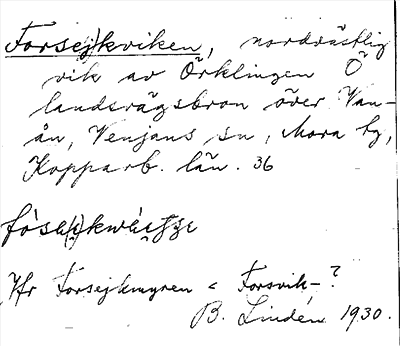 Forsej(k)viken, nordvästlig
vik av Örklingen Ö
landsvägsbron över Van-
ån, Venjans sn, Mora hg,
Kopparb. län. 36
Jfr Forsejkmyren < Forsvik-?
B. Lindén 1930.